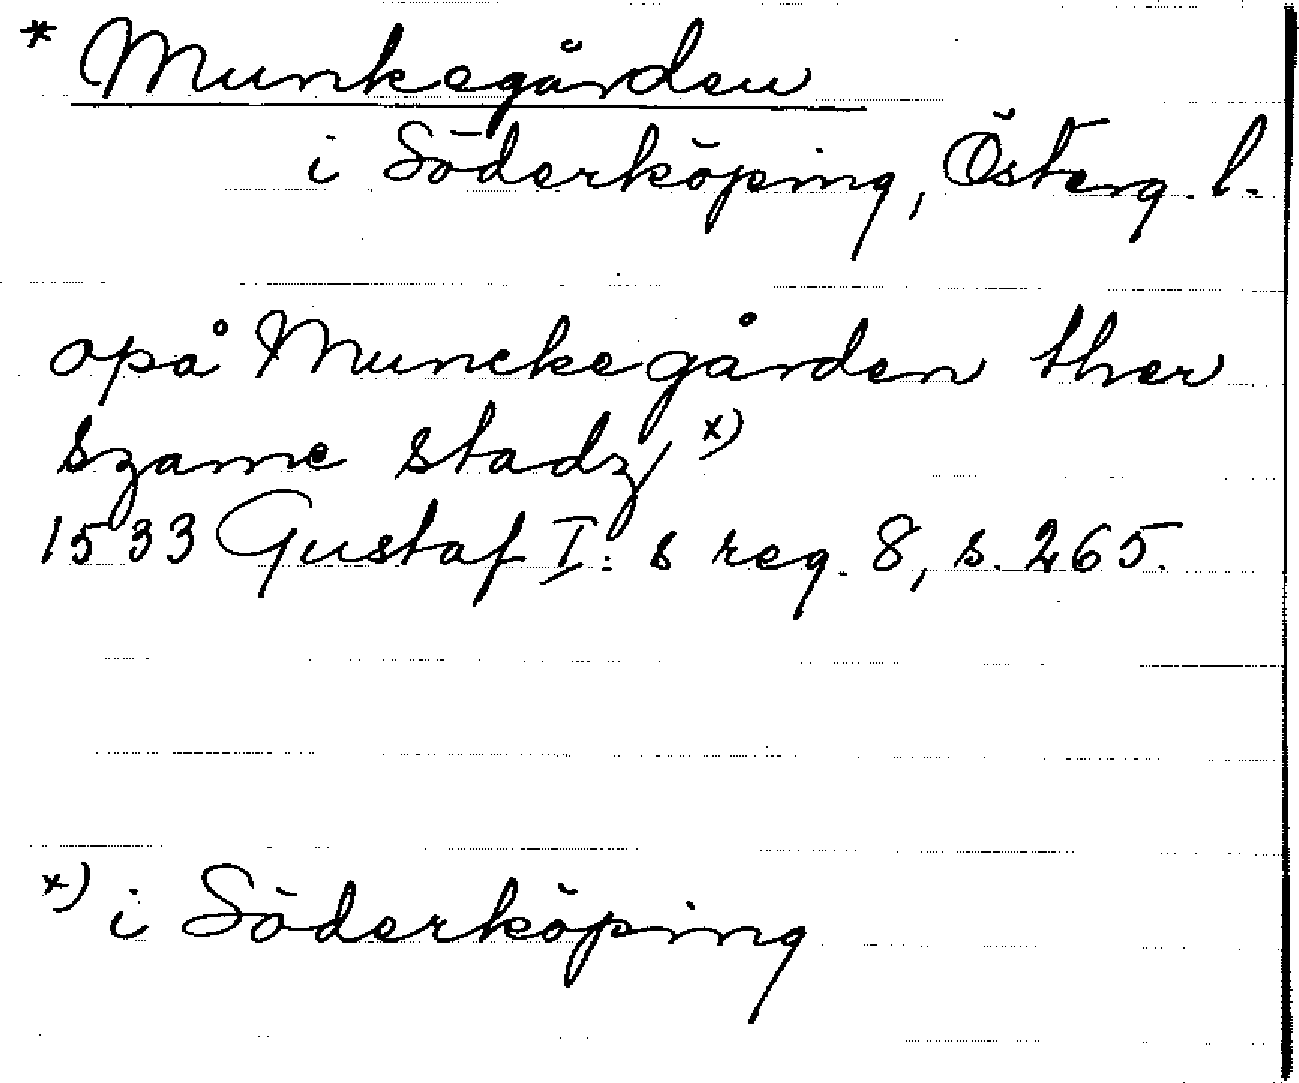 * Munkegården
i Söderköping, Österg. l.
opå Munckegården ther
szame stadz x)
1533 Gustaf I: s reg. 8, s. 265.
x) i Söderköping